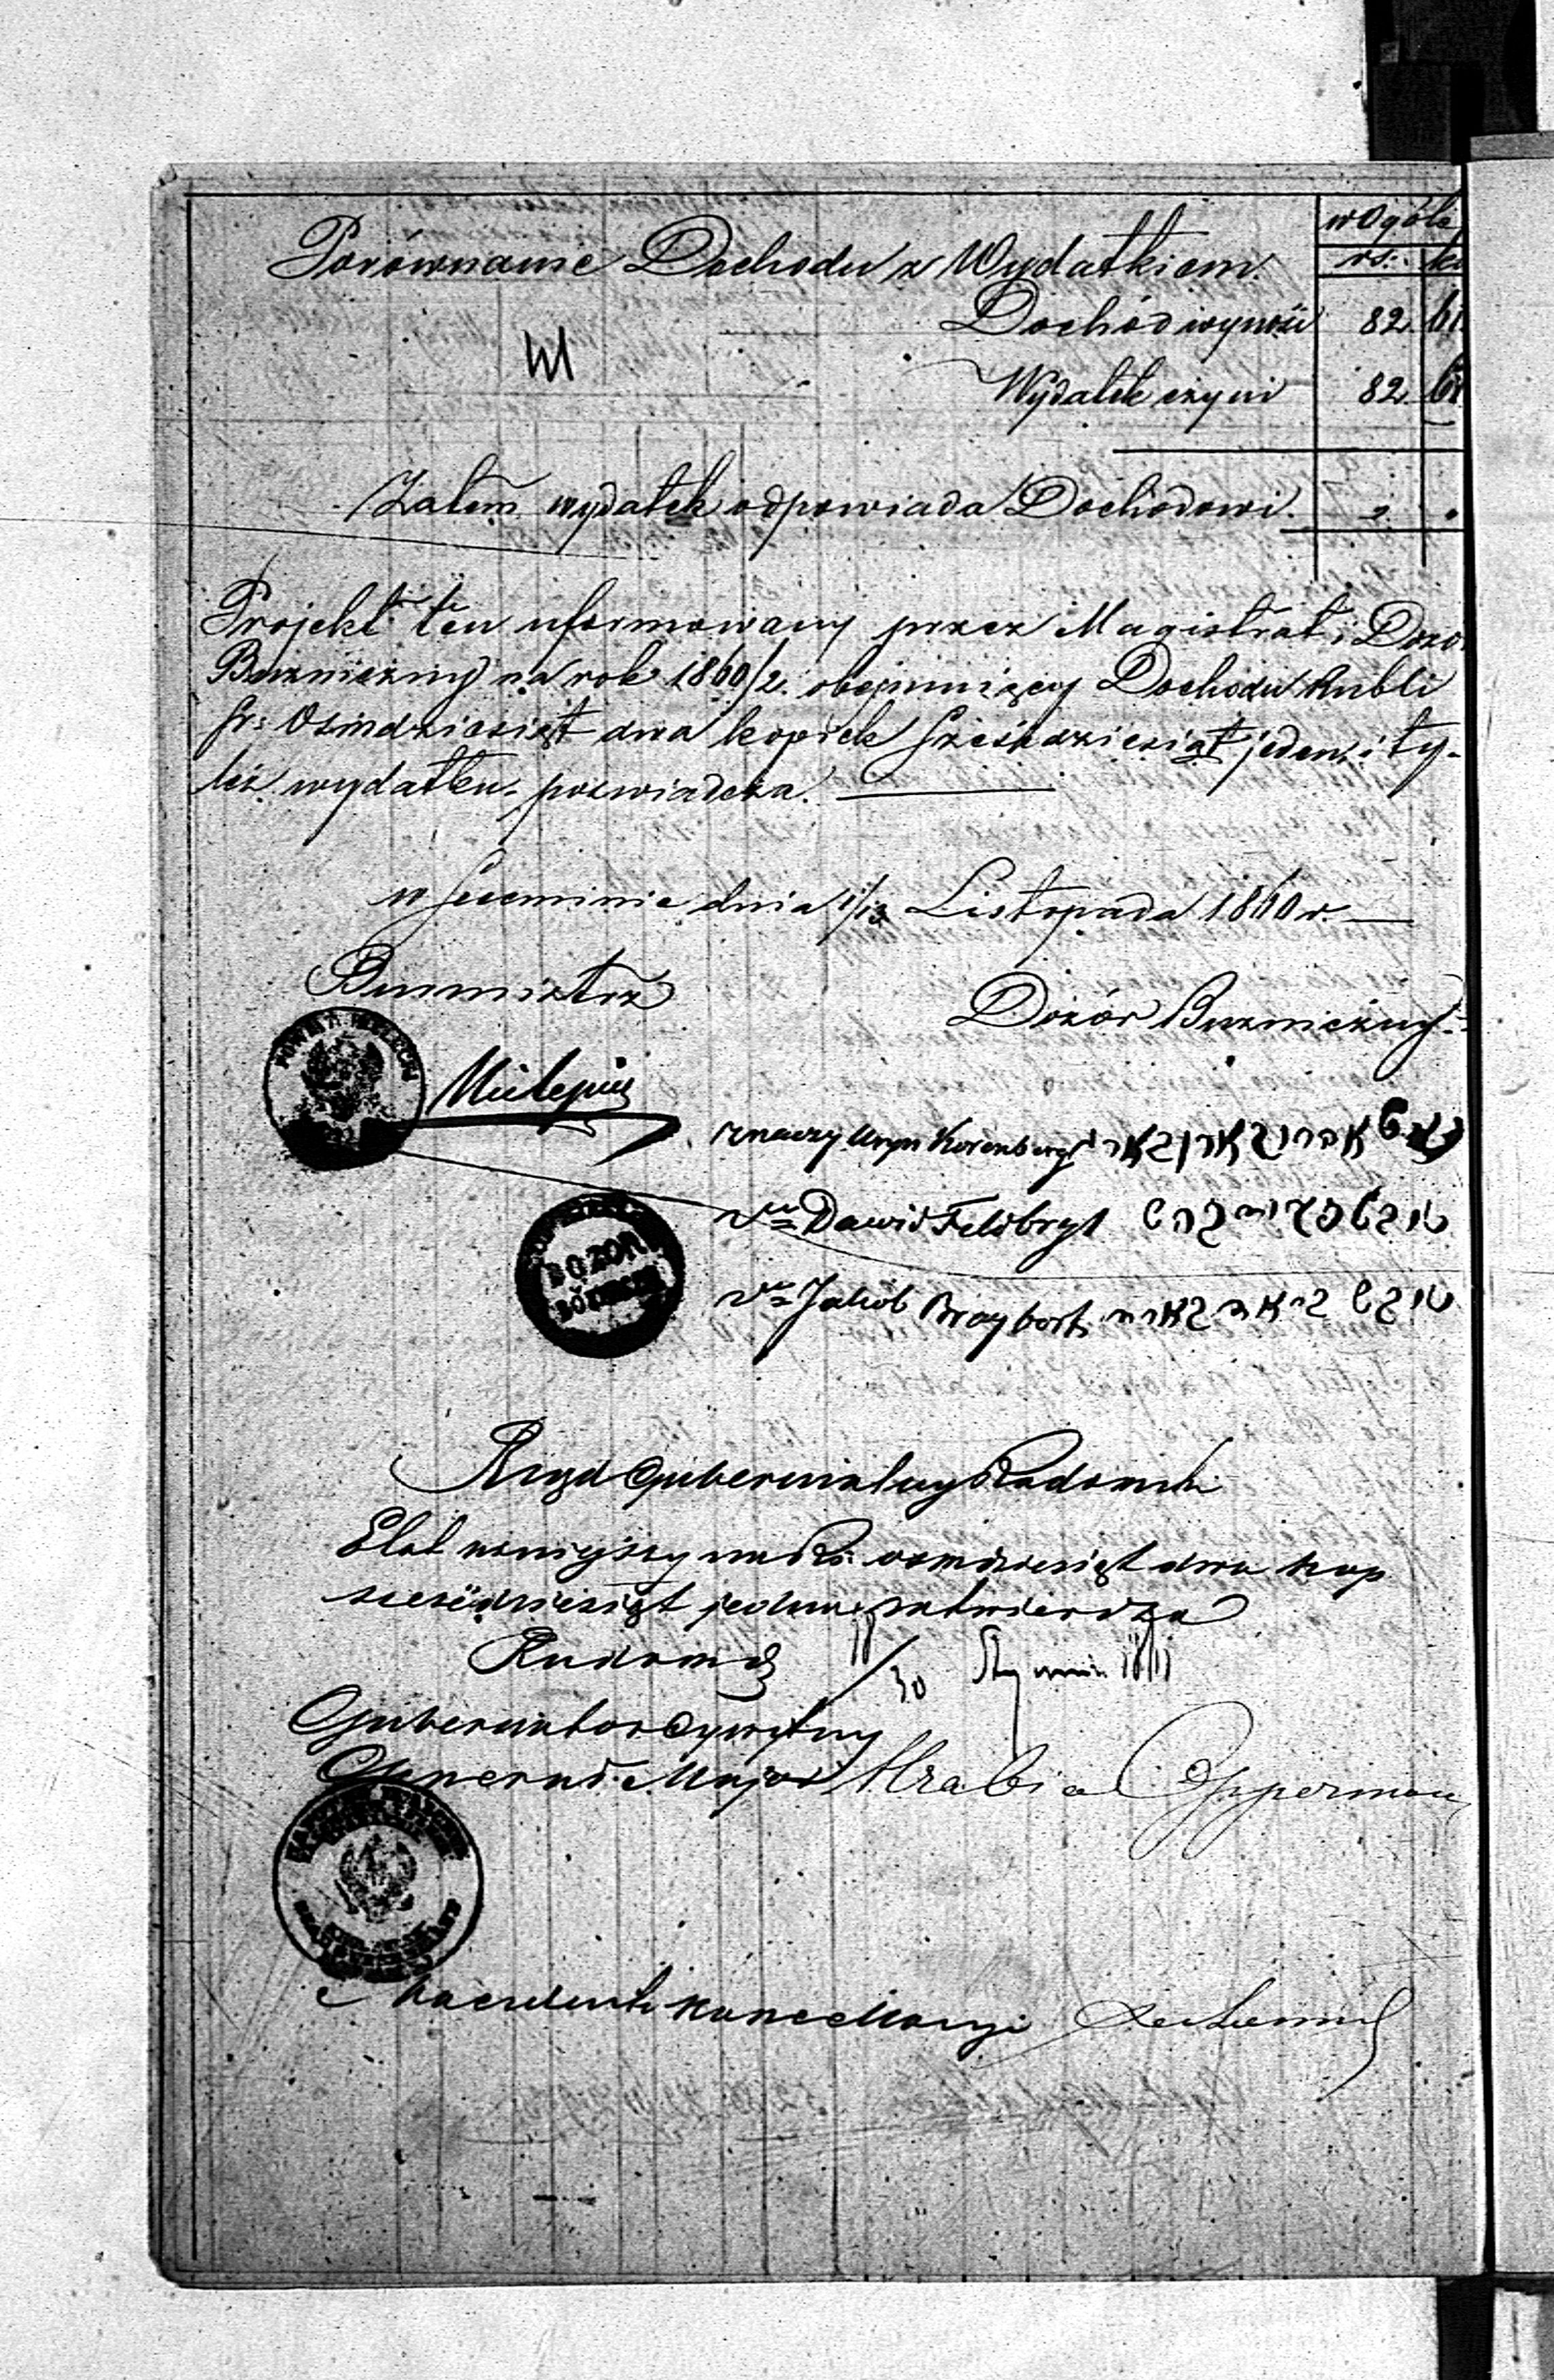 w Ogóle
rs: k
Porównanie Dochodu z Wydatkiem.
Dochód wynosi 82 61
Wydatek czyni 82 61
Zatem wydatek odpowiada Dochodowi.
Projekt ten uformowany przez Magistrat i Dozó
Bużniczny na rok 1860/2 obejmujący Dochodu Rubli
sr: Ośmdziesiąt dwa kopiek sześćdziesiąt jeden, i ty-
leż wydatku, poświadcza.
w dnia 1/13 Listopada 1860 r.
Burmistrz
Dozór Bużniczny
znaczy
Dawid Feldbryl
Jakob
DOZÓR
BÓŻNICZNY
Rząd Gubernialny Radomski
Etat na Rs. ośmdziesiąt dwa kop
sześćdziesiąt jeden zatwierdza
Radom d 18/30 Stycznia 1861
Gubernator Cywilny
Generał Major Hrabia Opperman
Kancellaryi